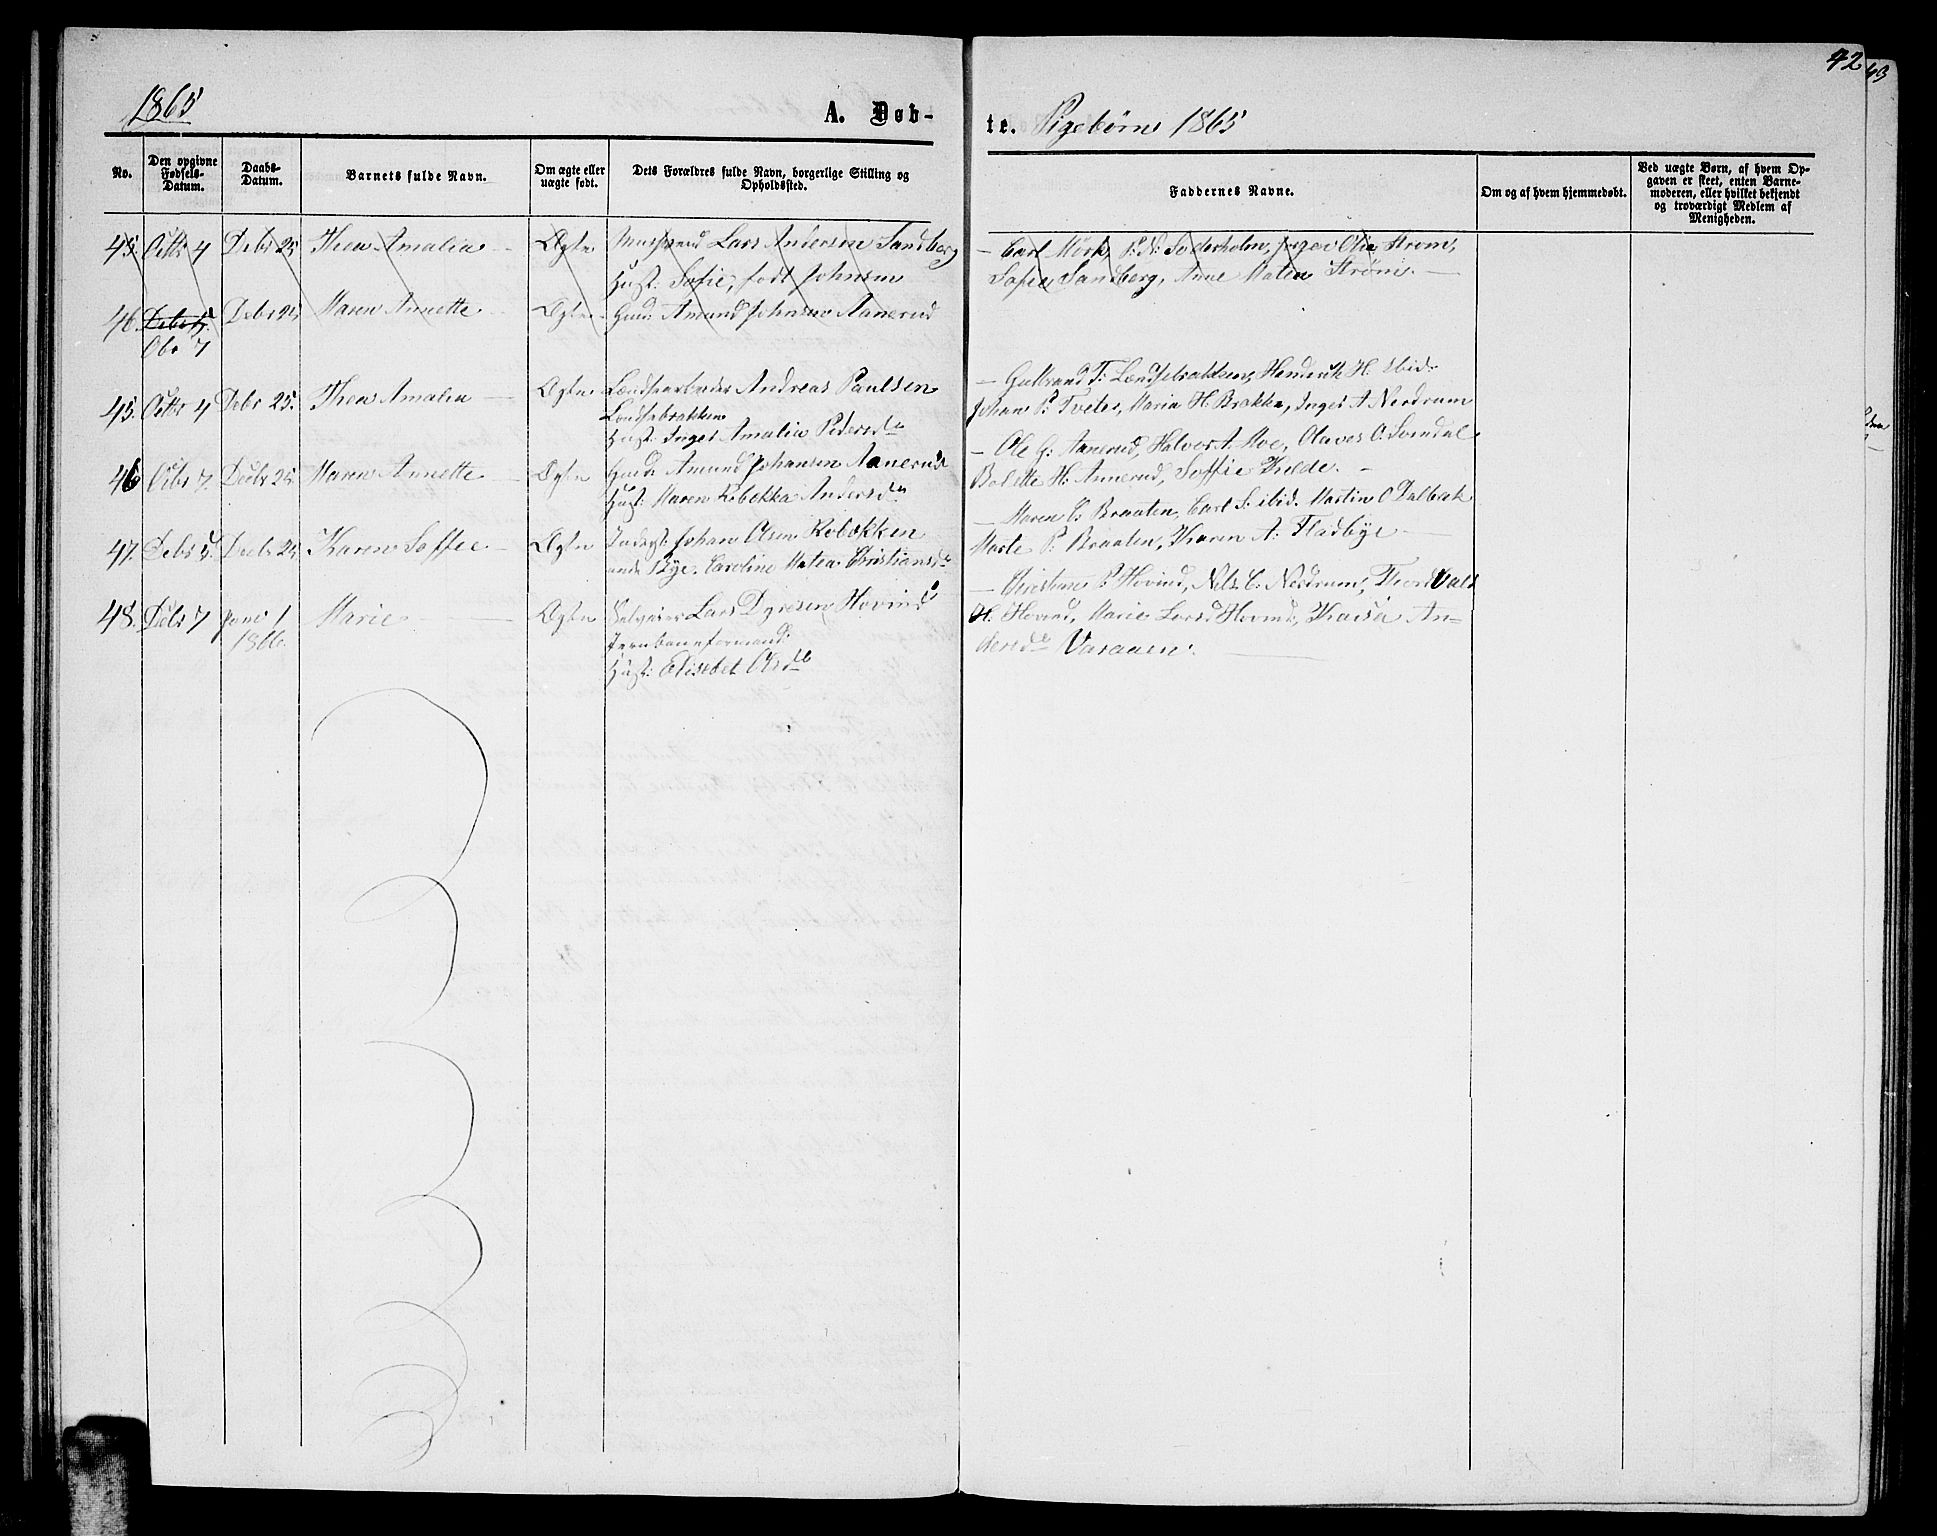 42
43
1865
A. Døb-
te. Pigebørn 1865
No.
Den opgivne Fødsels-Datum.
Daabs-Datum.
Barnets fulde Navn.
Om ægte eller uægte født.
Dets Forældres fulde Navn, borgerlige Stilling og Opholdssted.
Faddernes Navne.
Om og af hvem hjemmedøbt.
Ved uægte Børn, af hvem Opgaven er skeet, enten Barnemoderen, eller hvilket bekjendt og troværdigt Medlem af Menigheden.
45. Octbr 4 Debr 25 Thea Amalia Ægte Lars Andersen Sandberg
Hust: Sofie, født Johnsen
— Carl Mørk, P. N. Søderholm, Inger Olia Strøm,
Sofie Sandberg, Anne Matea Strøm. —
46. Debr 5. Debr 25 Maren Annette Ægte Gaard. Amund Johnsen Aanerud
Obr 7
45. Octbr 4 Debr 25. Thea Amalia — Ægte Andreas Paulsen
Hust: Inger Amalia Pedersdtr
— Gulbrand T: Hendrik H. ibid.
Johan P: Tveter, Maria H. Brække, Inger A Nordrum
46 Octbr 7. Decbr 25. Maren Annette — Ægte Gaardr Amund Johansen Aanerud
Hust: Maren Rebekka Andersdtr
— Ole G: Aanerud, Halvor A. Moe, Olaves O. Svendal
Bolette H. Annerud, Soffie Kilde. —
47. Debr 5. Decbr 25, Karen Soffie — Ægte Inderst Johan Olsen Robækken
under Bye. Caroline Matea Christiansdtr
— Maren C: Braaten, Carl S: ibid. Martin O Dalbak
Marte P: Braaten, Karen A: Fladbye —
48. Debr 7 Janr 1 Marie — Ægte Selveier Lars Dyresen Hovind
1866.
Jernbaneformand.
Hust: Elisebet Olsdtr
— Christian P. Hovind, Nils C. Nordrum, Thordvald
H. Hovind, Marie Larsd Hovind, Kaisa An-
dersdtr Varaaen. —